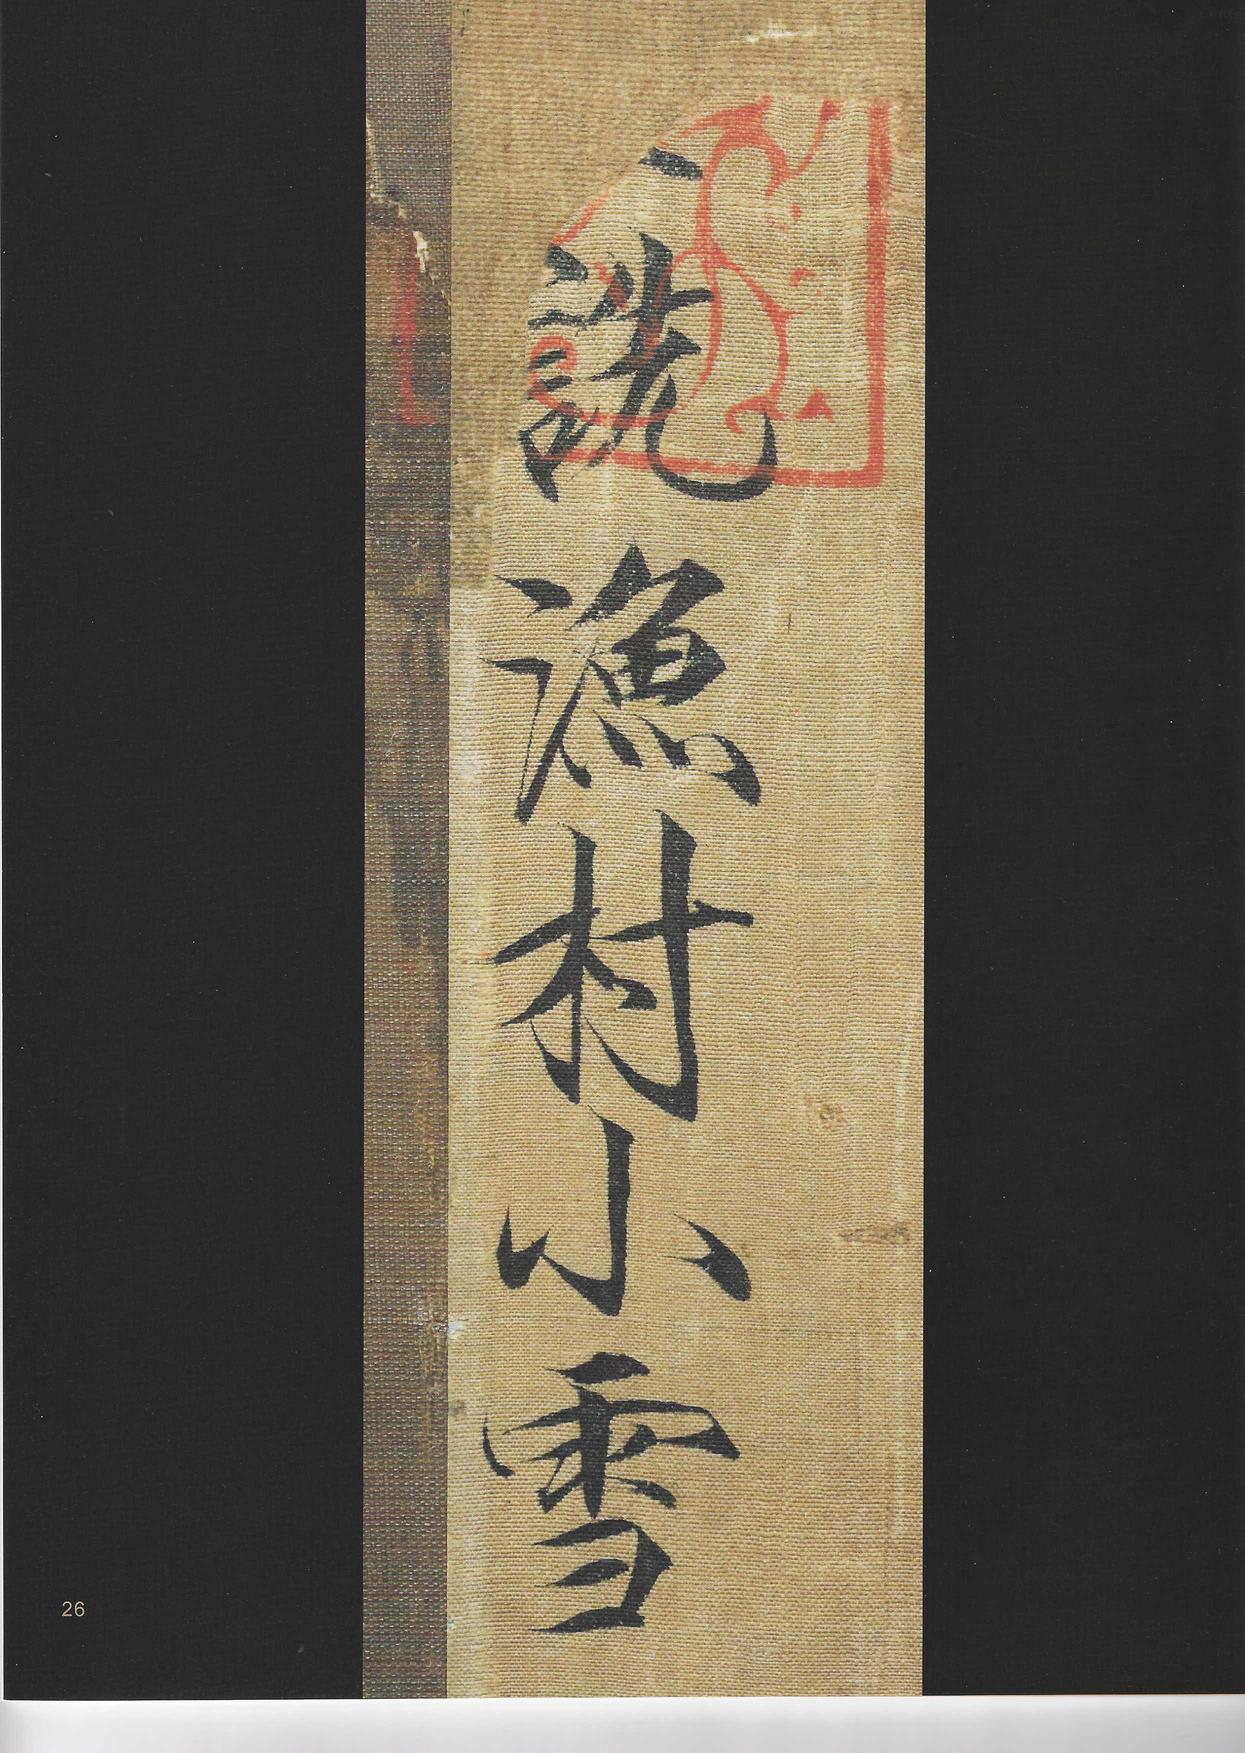 詵漁村小雪
26